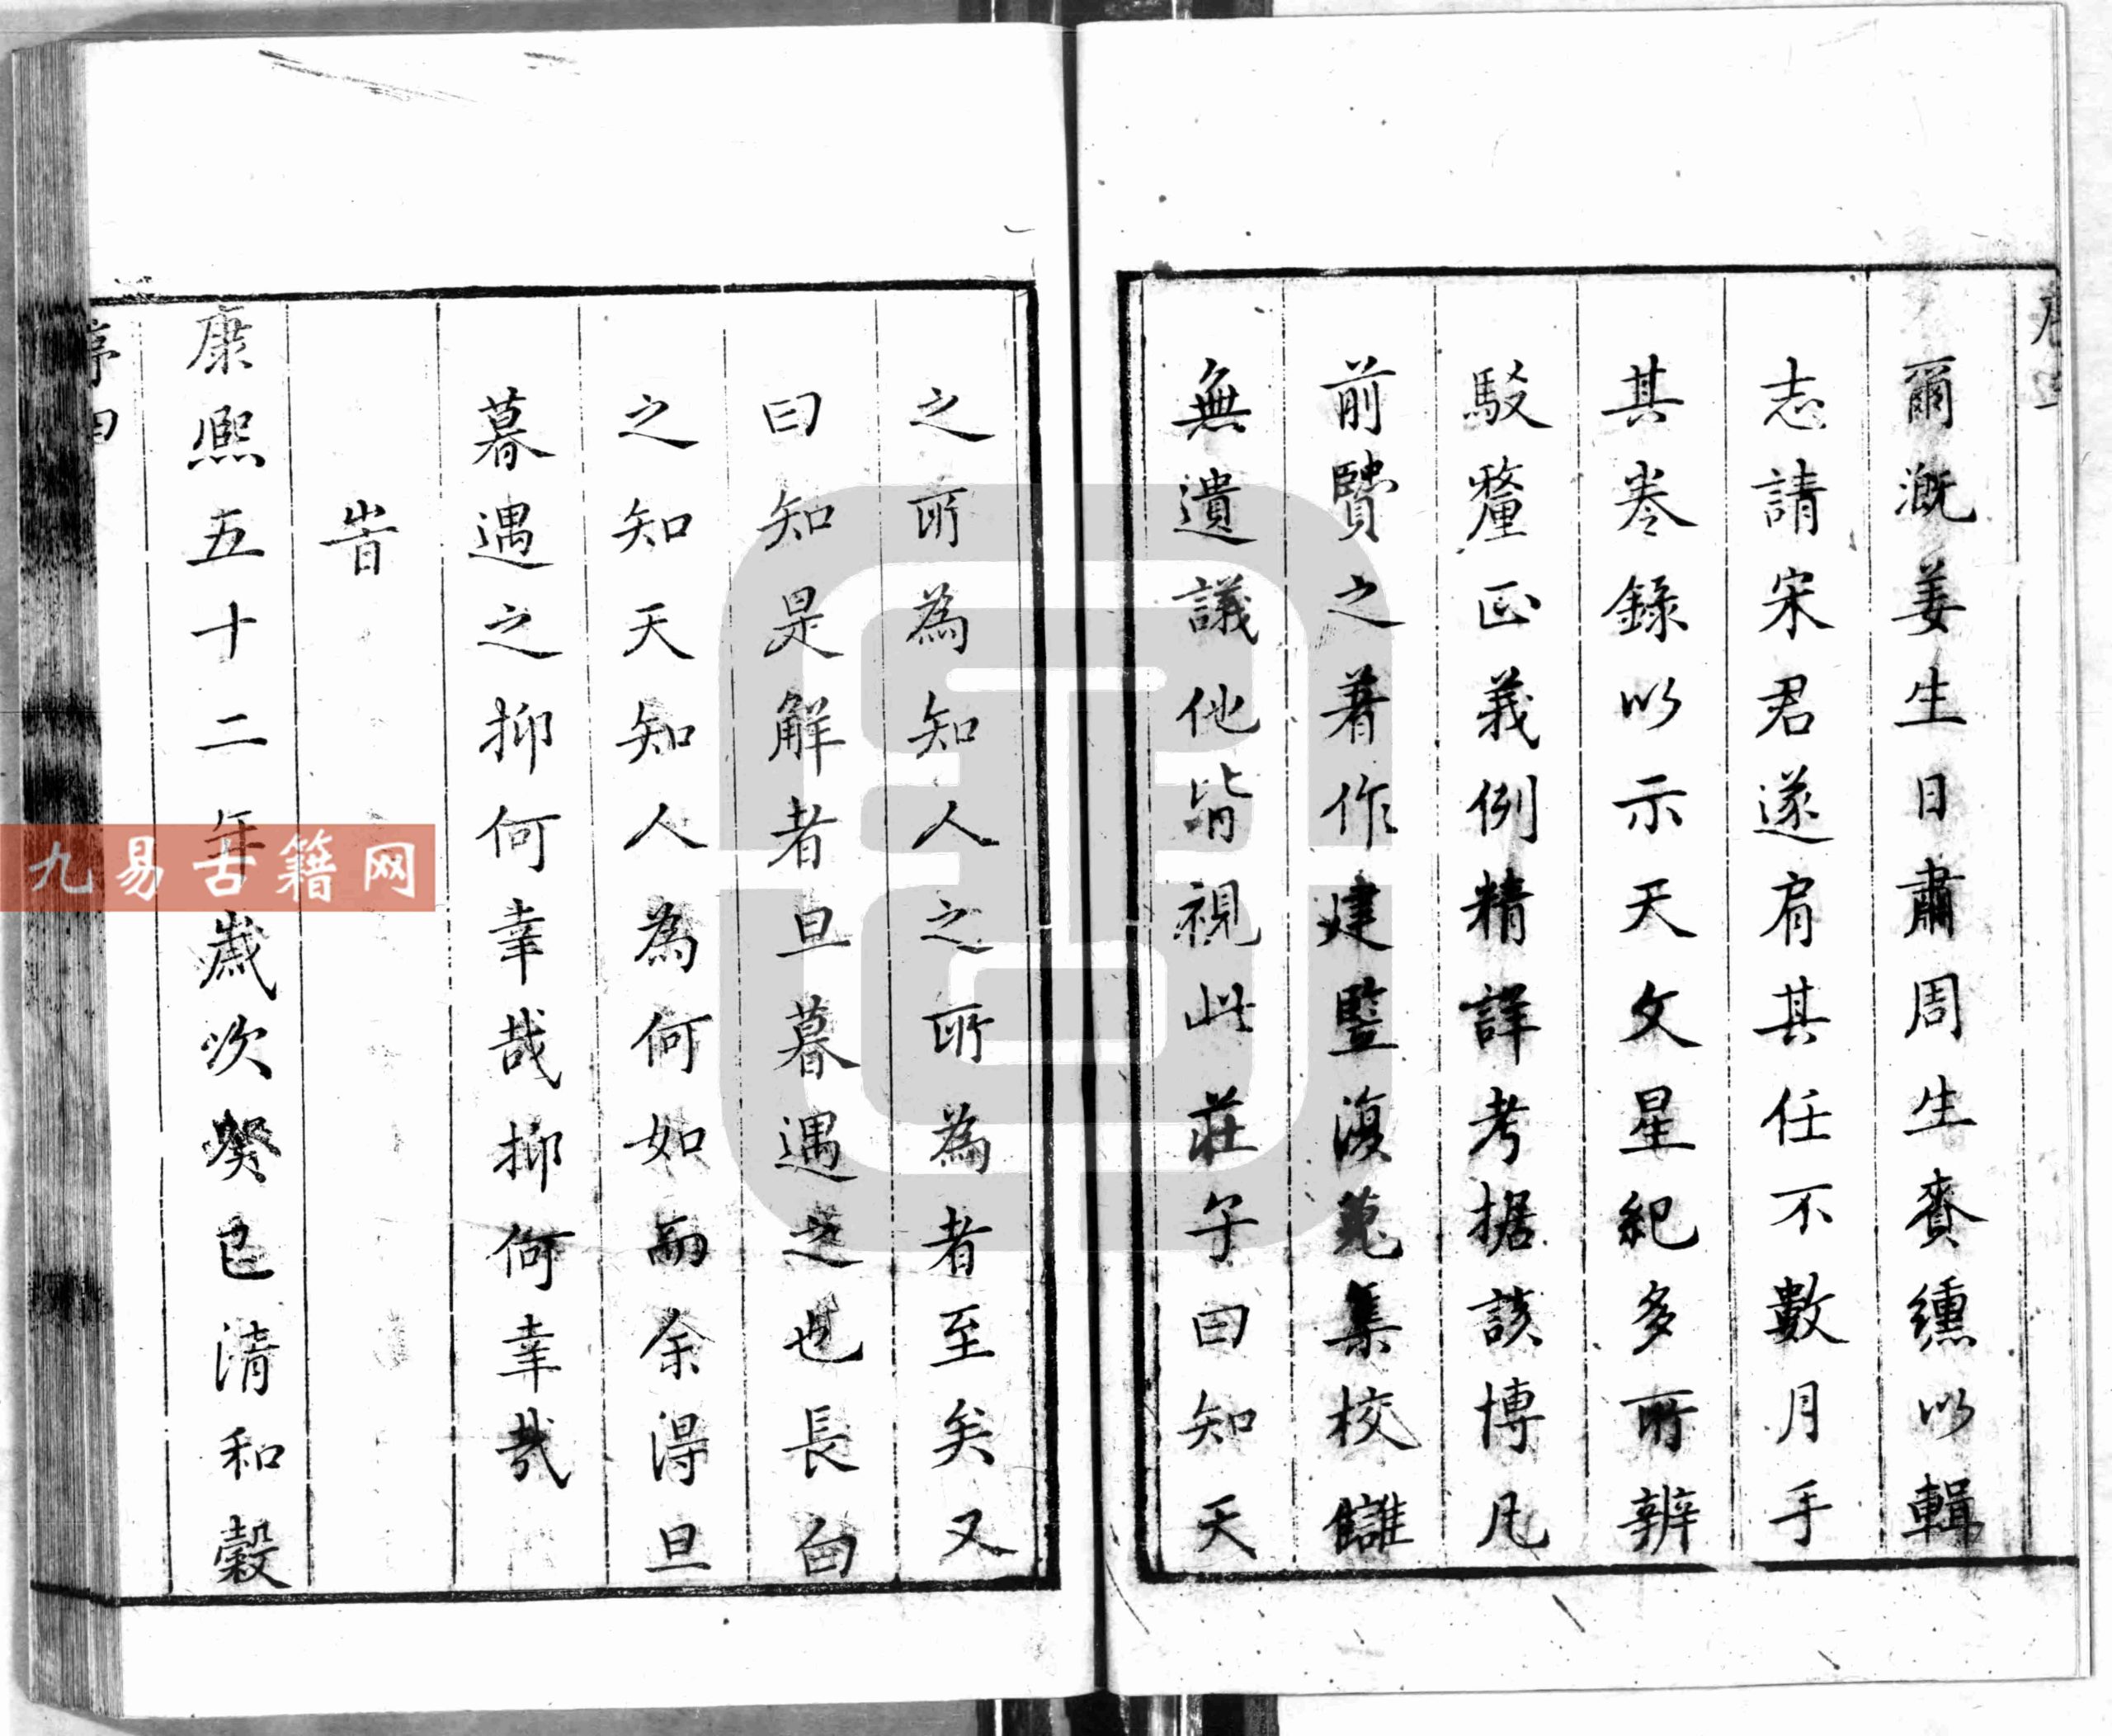 爾溉姜生日肅周生賚纁以輯
志請宋君遂肩其任不數月手
其卷錄以示天文星紀多所辨
駁釐正義例精詳考据該博凡
前賢之著作建豎復蒐集校讎
無遺議他皆視此莊子曰知天
之所為知人之所為者至矣又
曰知是解者旦暮遇之也長白
之知天知人為何如而余得旦
暮遇之抑何幸哉抑何幸哉
旹
康熙五十二年歲次癸巳清和穀
九易古籍网